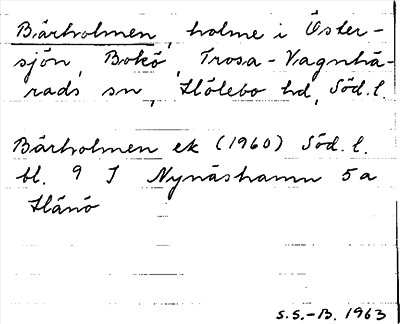 Bärholmen, holme i Öster-
sjön, Bokö, Trosa-Vagnhä-
rads sn, Hölebo hd, Söd. l.
Bärholmen ek (1960) Söd. l.
bl. 9 I Nynäshamn 5a
Hånö
S.S.-B. 1963